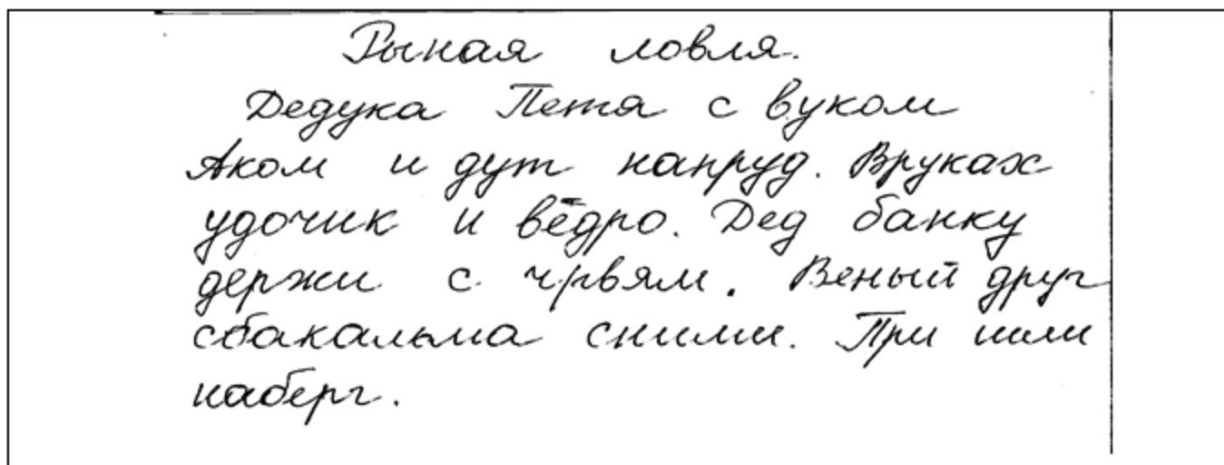 Рыная ловля.
Дедука Петя с вуком
Аком и дут напруд. Вруках
удочик и вёдро. Дед банку
держи с чрвям. Веный друг
сбакальма сними. При шли
наберг.